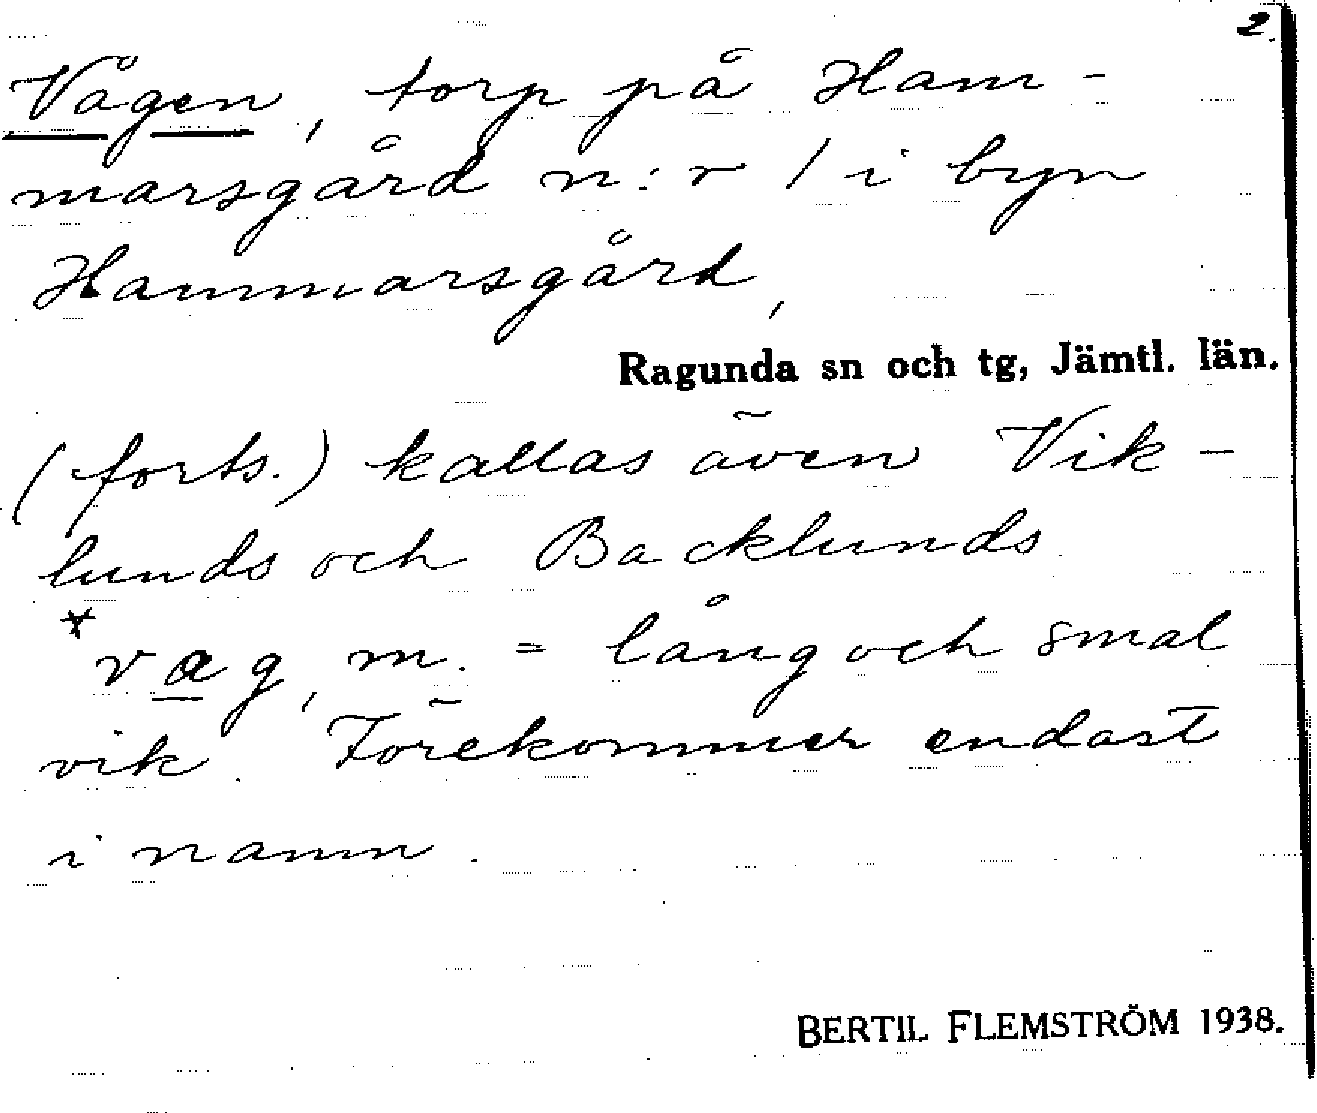 2.
Vågen, torp på Ham-
marsgård n:r 1 i byn
Hammarsgård,
Ragunda sn och tg, Jämtl. län.
(forts.) kallas även Vik-
lunds och Backlunds.
* vag, m. = lång och smal
vik. Förekommer endast
i namn.
BERTIL FLEMSTRÖM 1938.